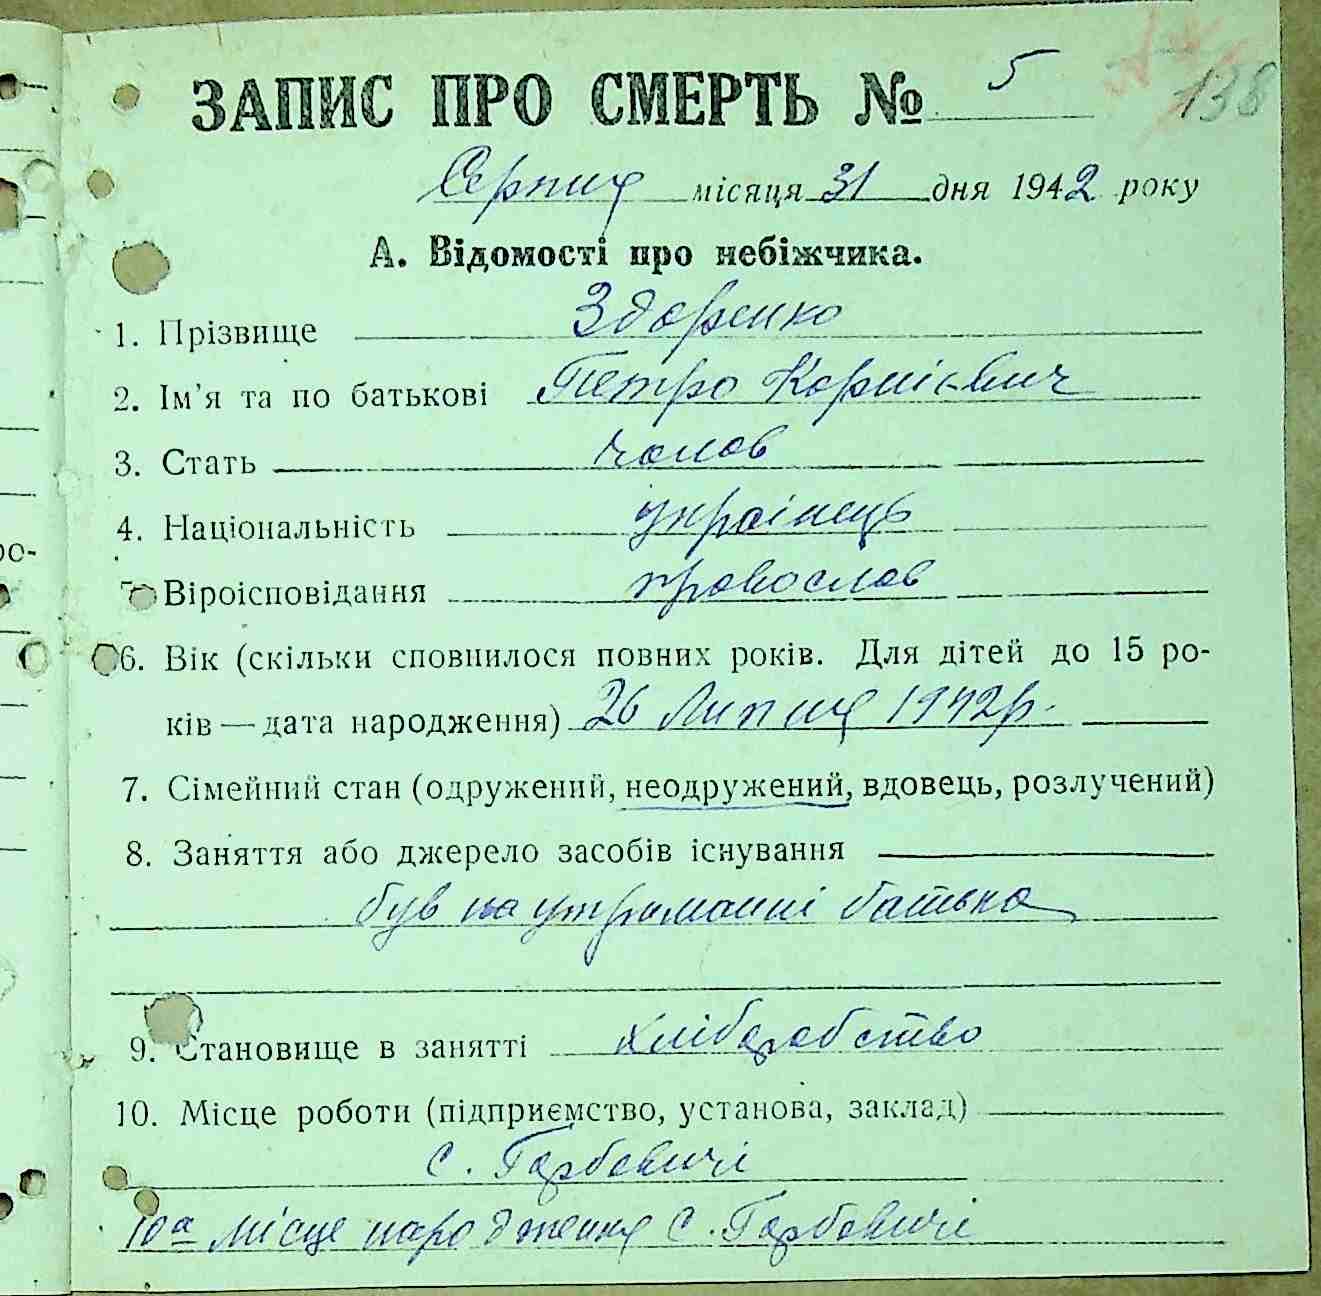 138
ЗАПИС ПРО СМЕРТЬ № 5
Серпня місяця 31 дня 1942 року
А. Відомості про небіжчика.
1. Прізвище Здоренко
2. Ім'я та по батькові Петро Корнієвич
3. Стать чолов
4. Національність українець
Віроісповідання православ
6. Вік (скільки сповнилося повних років. Для дітей до 15 ро-
ків — дата народження) 26 Липня 1942р.
7. Сімейний стан (одружений, неодружений, вдовець, розлучений)
8. Заняття або джерело засобів існування
був на утриманні батька
9. Становище в занятті хліборобство
10. Місце роботи (підприємство, установа, заклад)
с. Горбовичі
10а місце народження с. Горбовичі
ро-